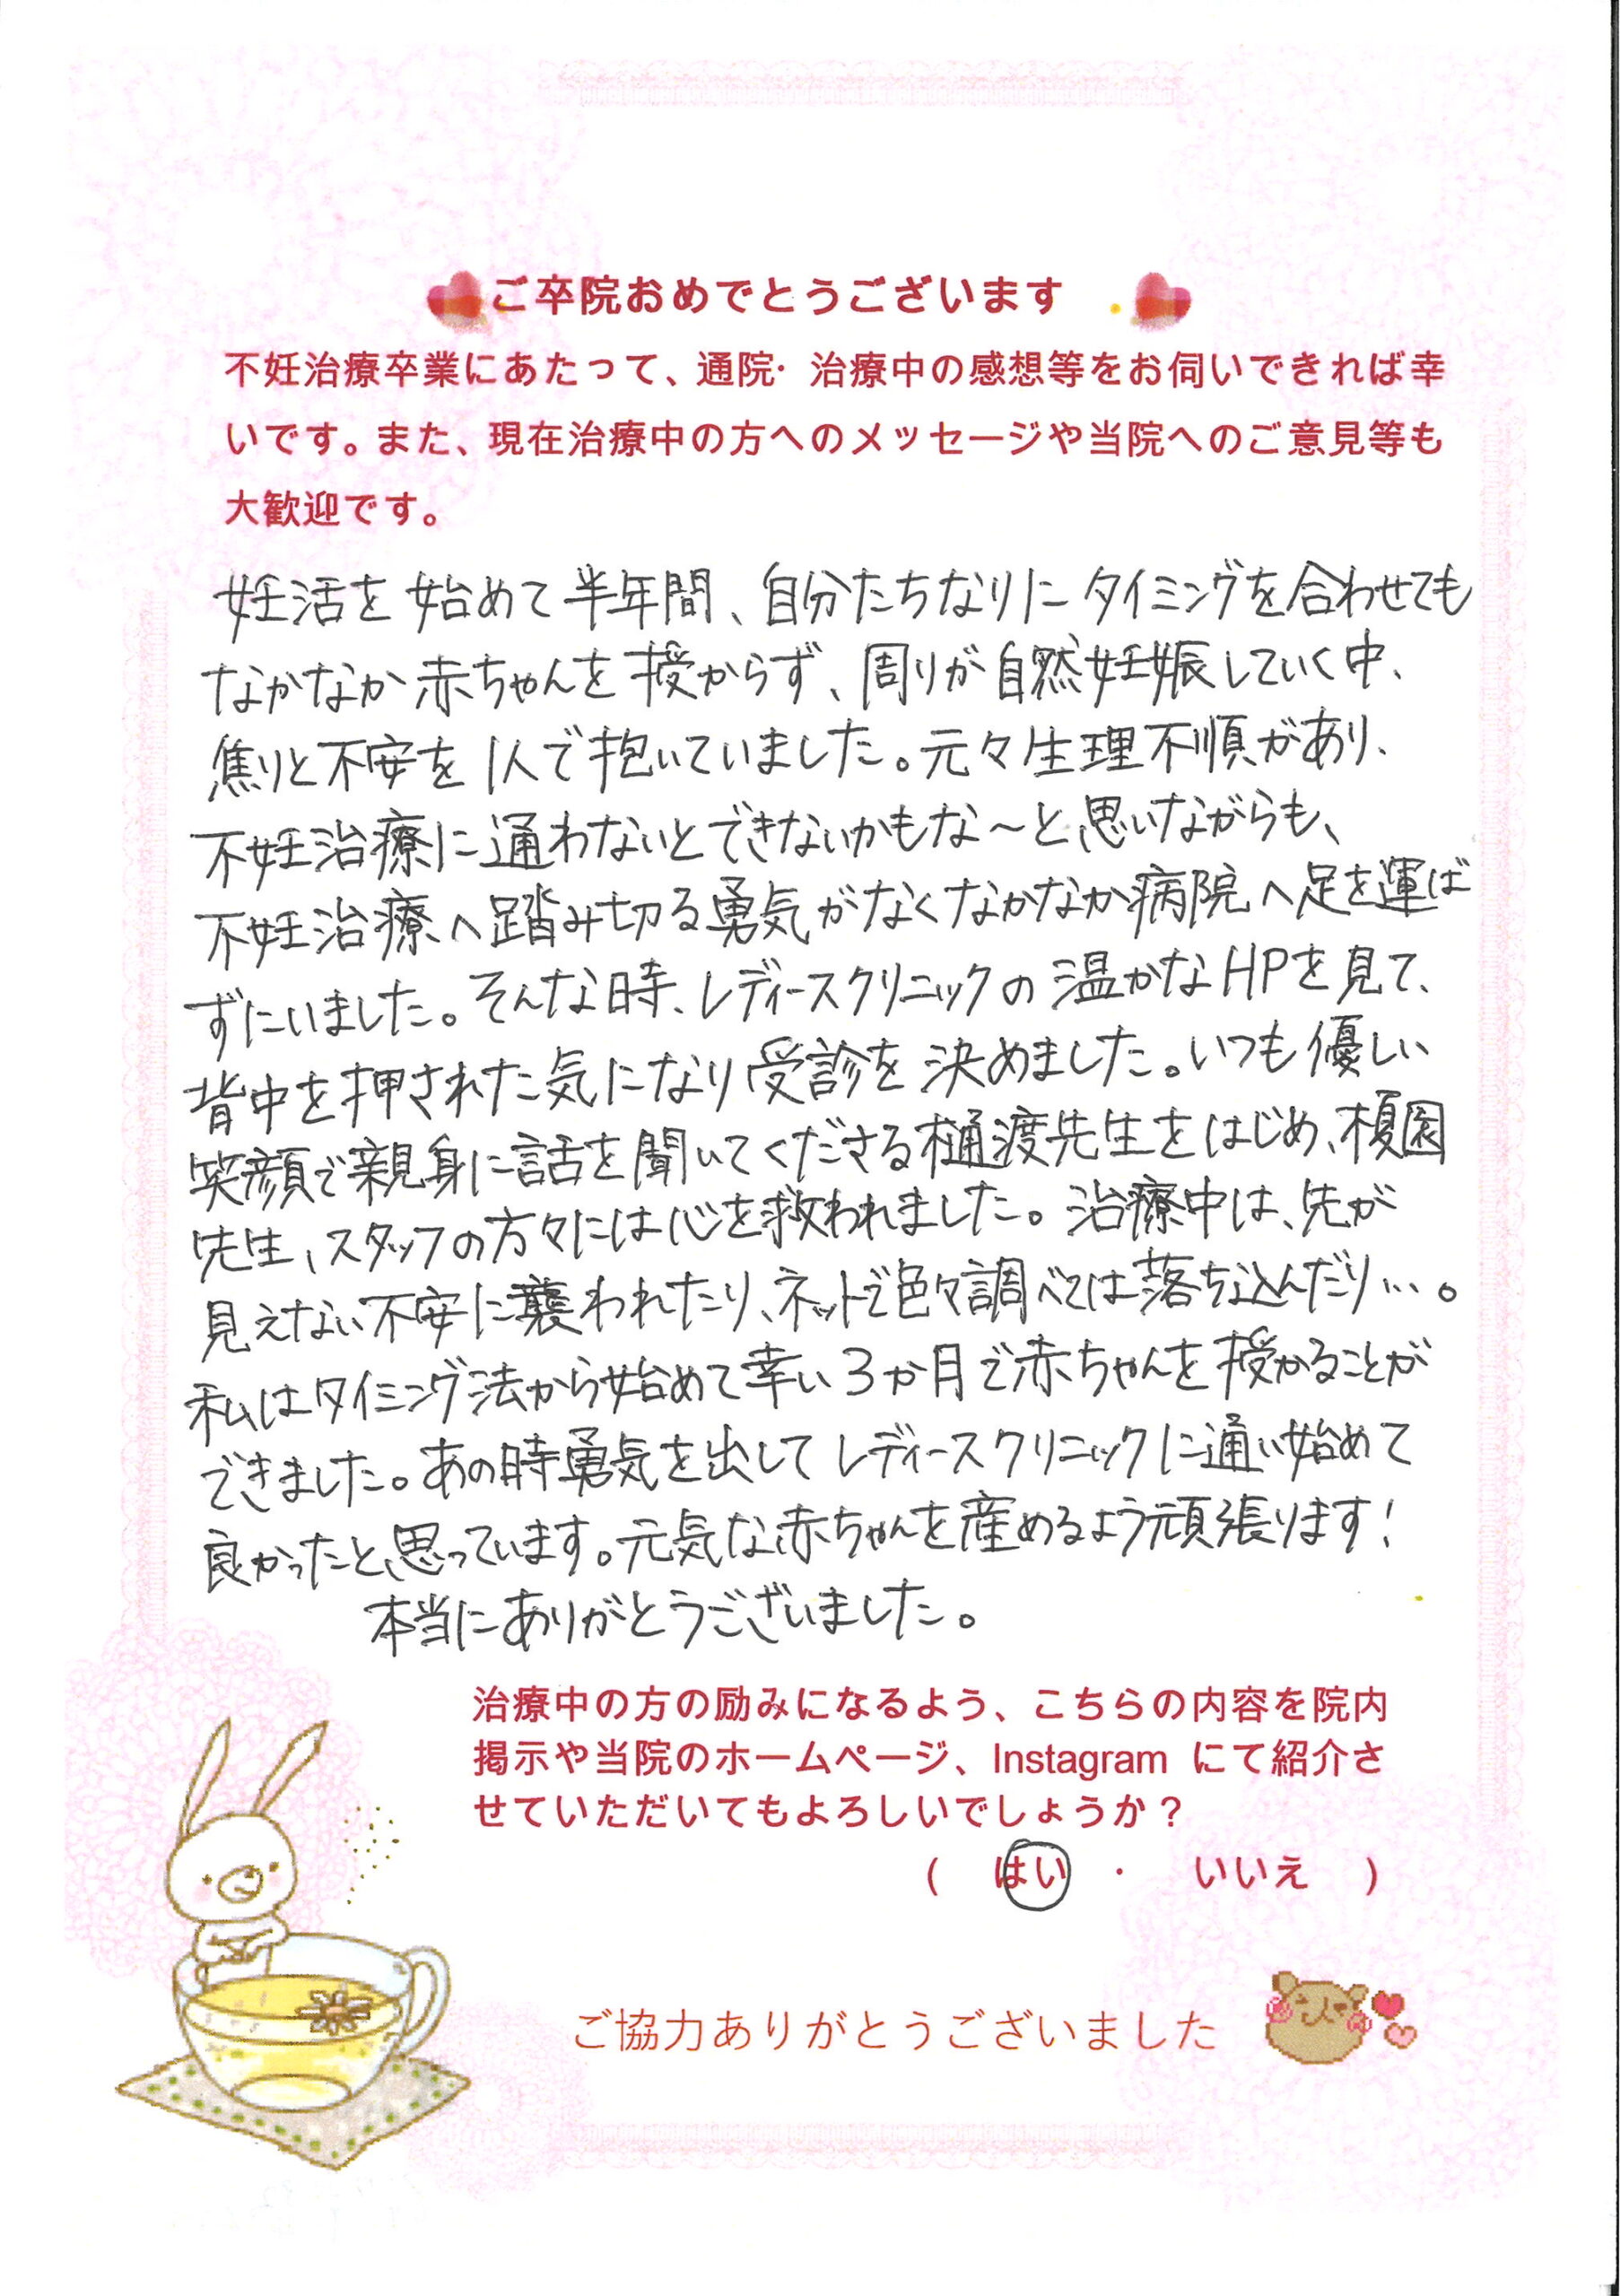 ご卒院おめでとうございます
不妊治療卒業にあたって、通院・治療中の感想等をお伺いできれば幸
いです。また、現在治療中の方へのメッセージや当院へのご意見等も
大歓迎です。
妊活を始めて半年間、自分たちなりにタイミングを合わせても
なかなか赤ちゃんを授からず、周りが自然妊娠していく中、
焦りと不安を1人で抱いていました。元々生理不順があり、
不妊治療に通わないとできないかもな〜と思いながらも、
不妊治療へ踏み切る勇気がなくなかなか病院へ足を運ば
ずにいました。そんな時、レディースクリニックの温かなHPを見て、
背中を押された気になり受診を決めました。いつも優しい
笑顔で親身に話を聞いてくださる樋渡先生をはじめ、榎園
先生、スタッフの方々には心を救われました。治療中は、先が
見えない不安に襲われたり、ネットで色々調べては落ち込んだり…。
私はタイミング法から始めて幸い3か月で赤ちゃんを授かることが
できました。あの時勇気を出してレディースクリニックに通い始めて
良かったと思っています。元気な赤ちゃんを産めるよう頑張ります!
本当にありがとうございました。
治療中の方の励みになるよう、こちらの内容を院内
掲示や当院のホームページ、Instagram にて紹介さ
せていただいてもよろしいでしょうか?
( はい ・ いいえ )
ご協力ありがとうございました